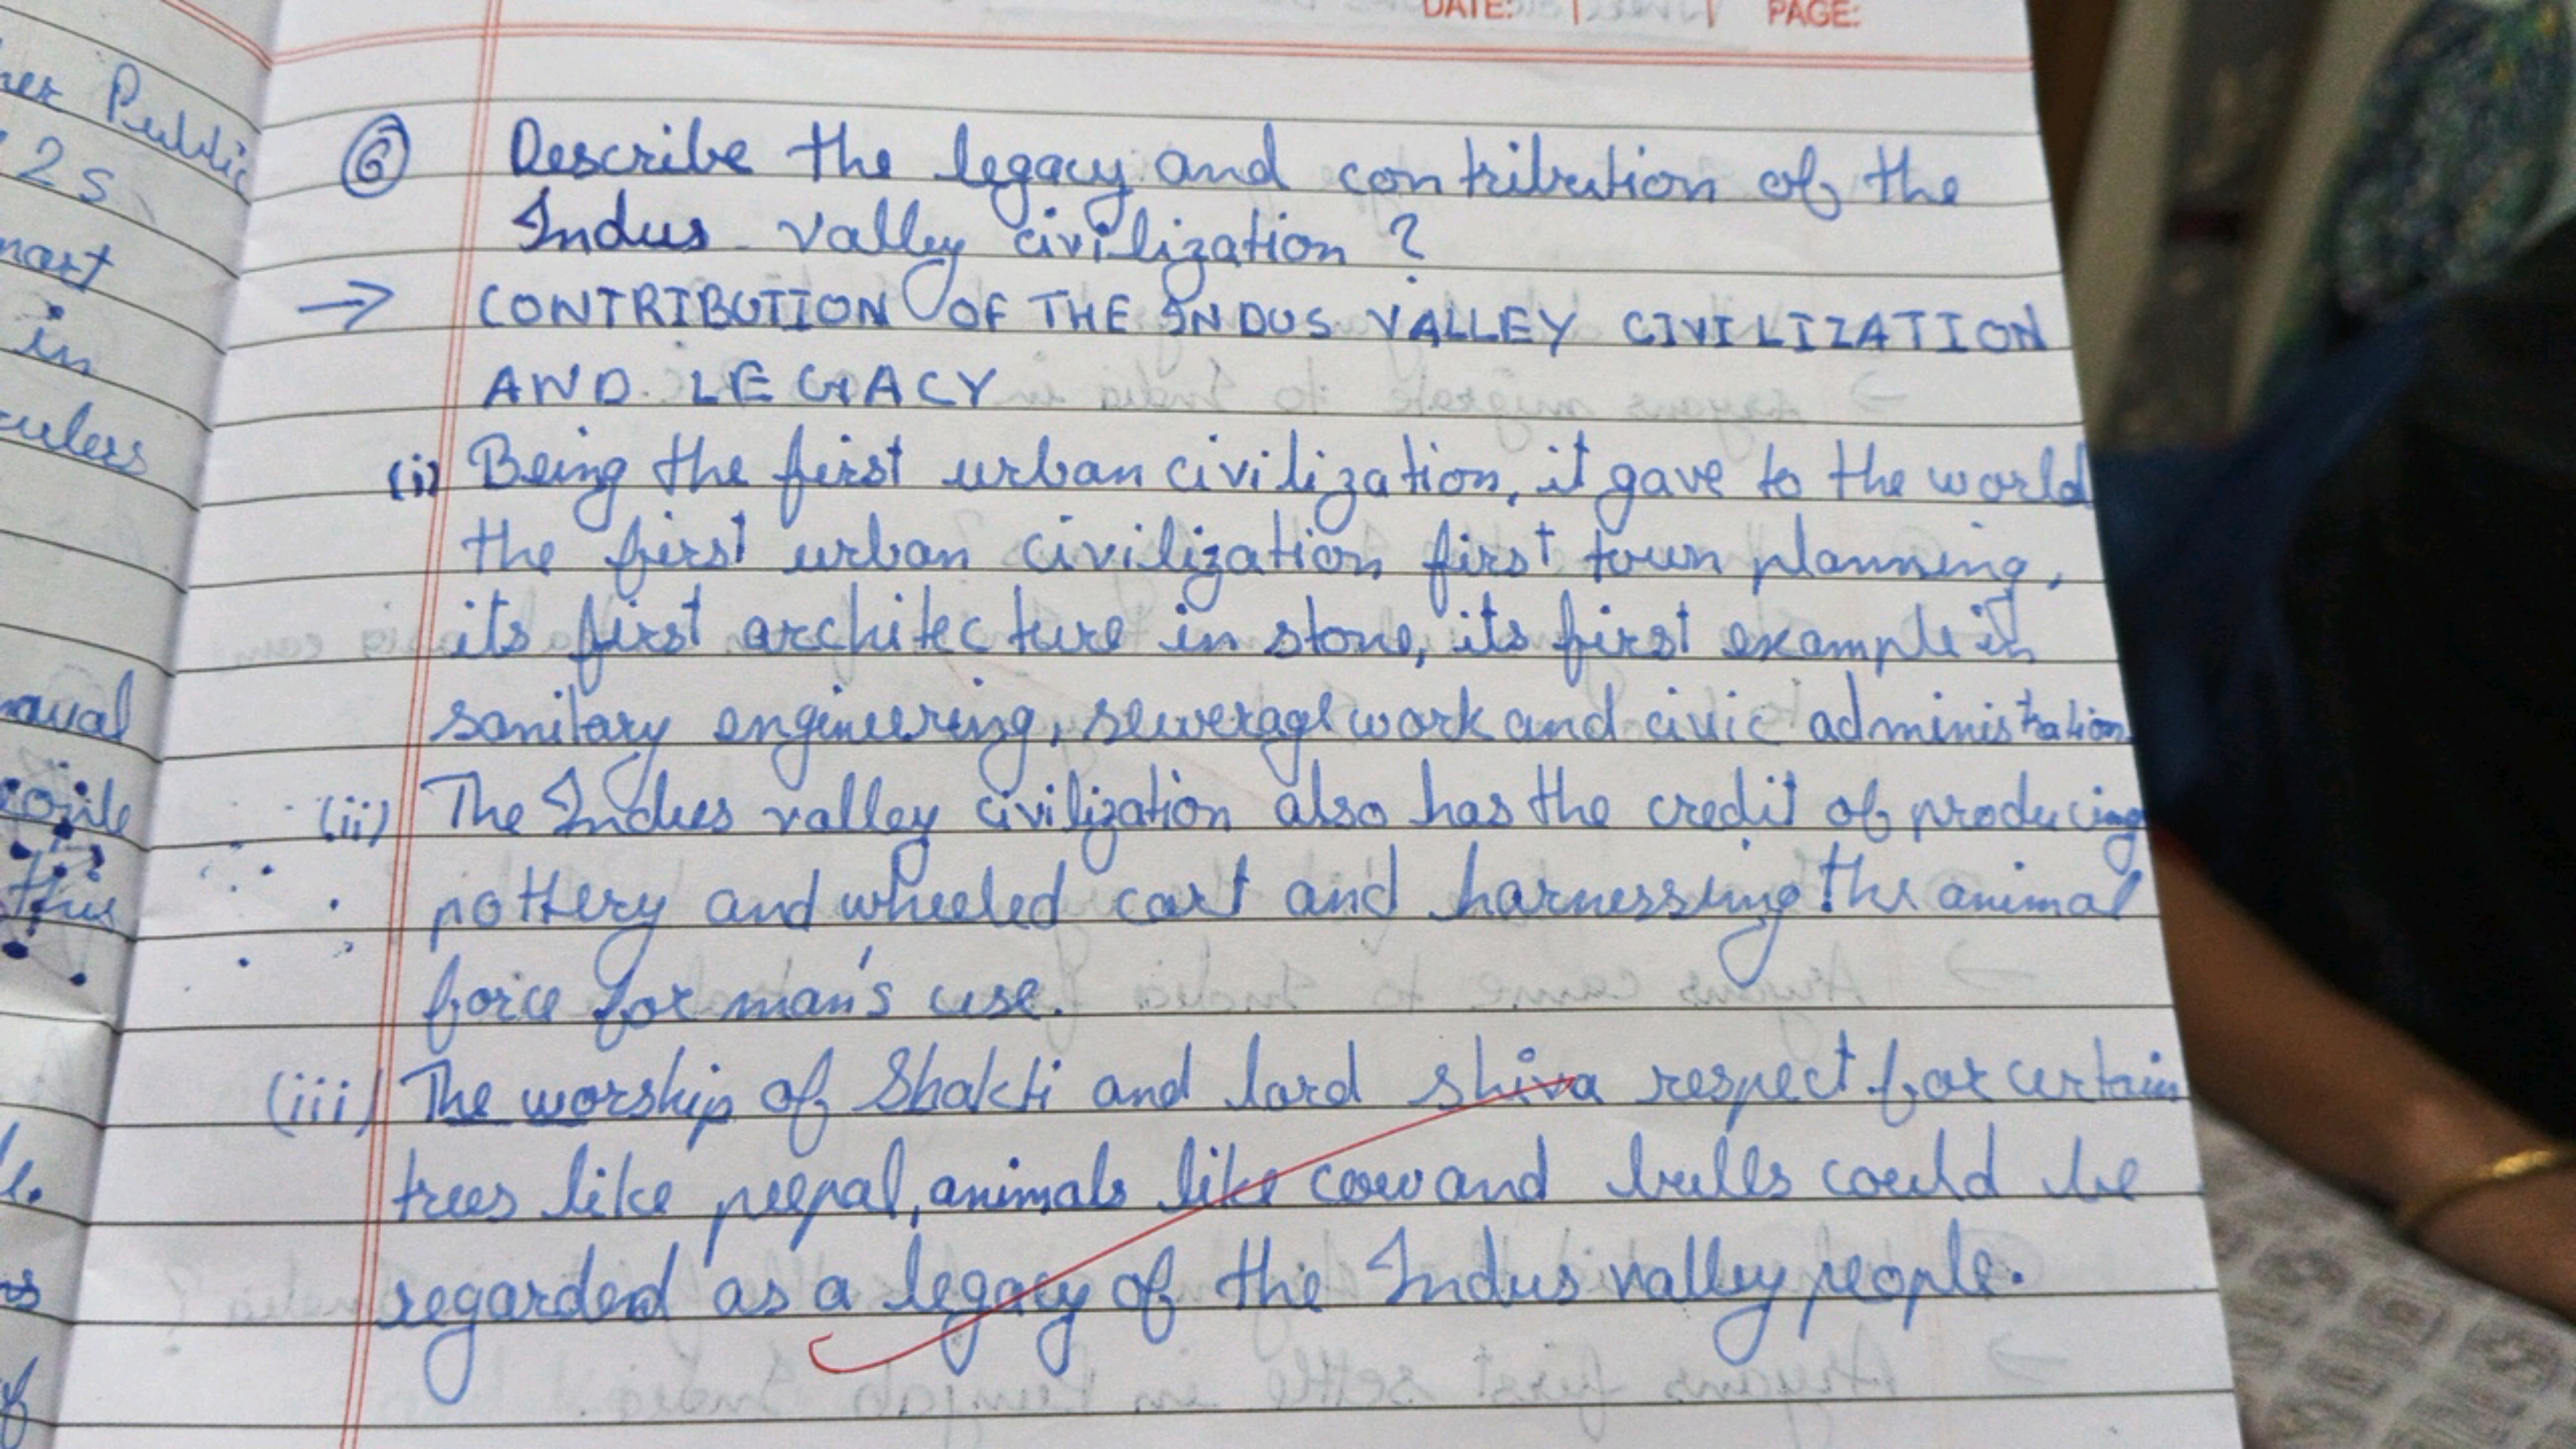 DATE: PAGE:
Public
2s
in
⑥ Describe the legacy and contribution of the
Indus valley civilization ?
→ CONTRIBUTION OF THE INDUS VALLEY CIVILIZATION
AND LEGACY
(i) Being the first urban civilization, it gave to the world
the first urban civilization first town planning,
its first architecture in stone, its first example in
sanitary engineering, sewerage work and civic administration
(ii) The Indus valley civilization also has the credit of producing
pottery and wheeled cart and harnessing the animal
force for man's use.
(iii) The worship of Shakti and lord shiva respect for certain
trees like peepal, animals like cow and bulls could be
regarded as a legacy of the Indus valley people.